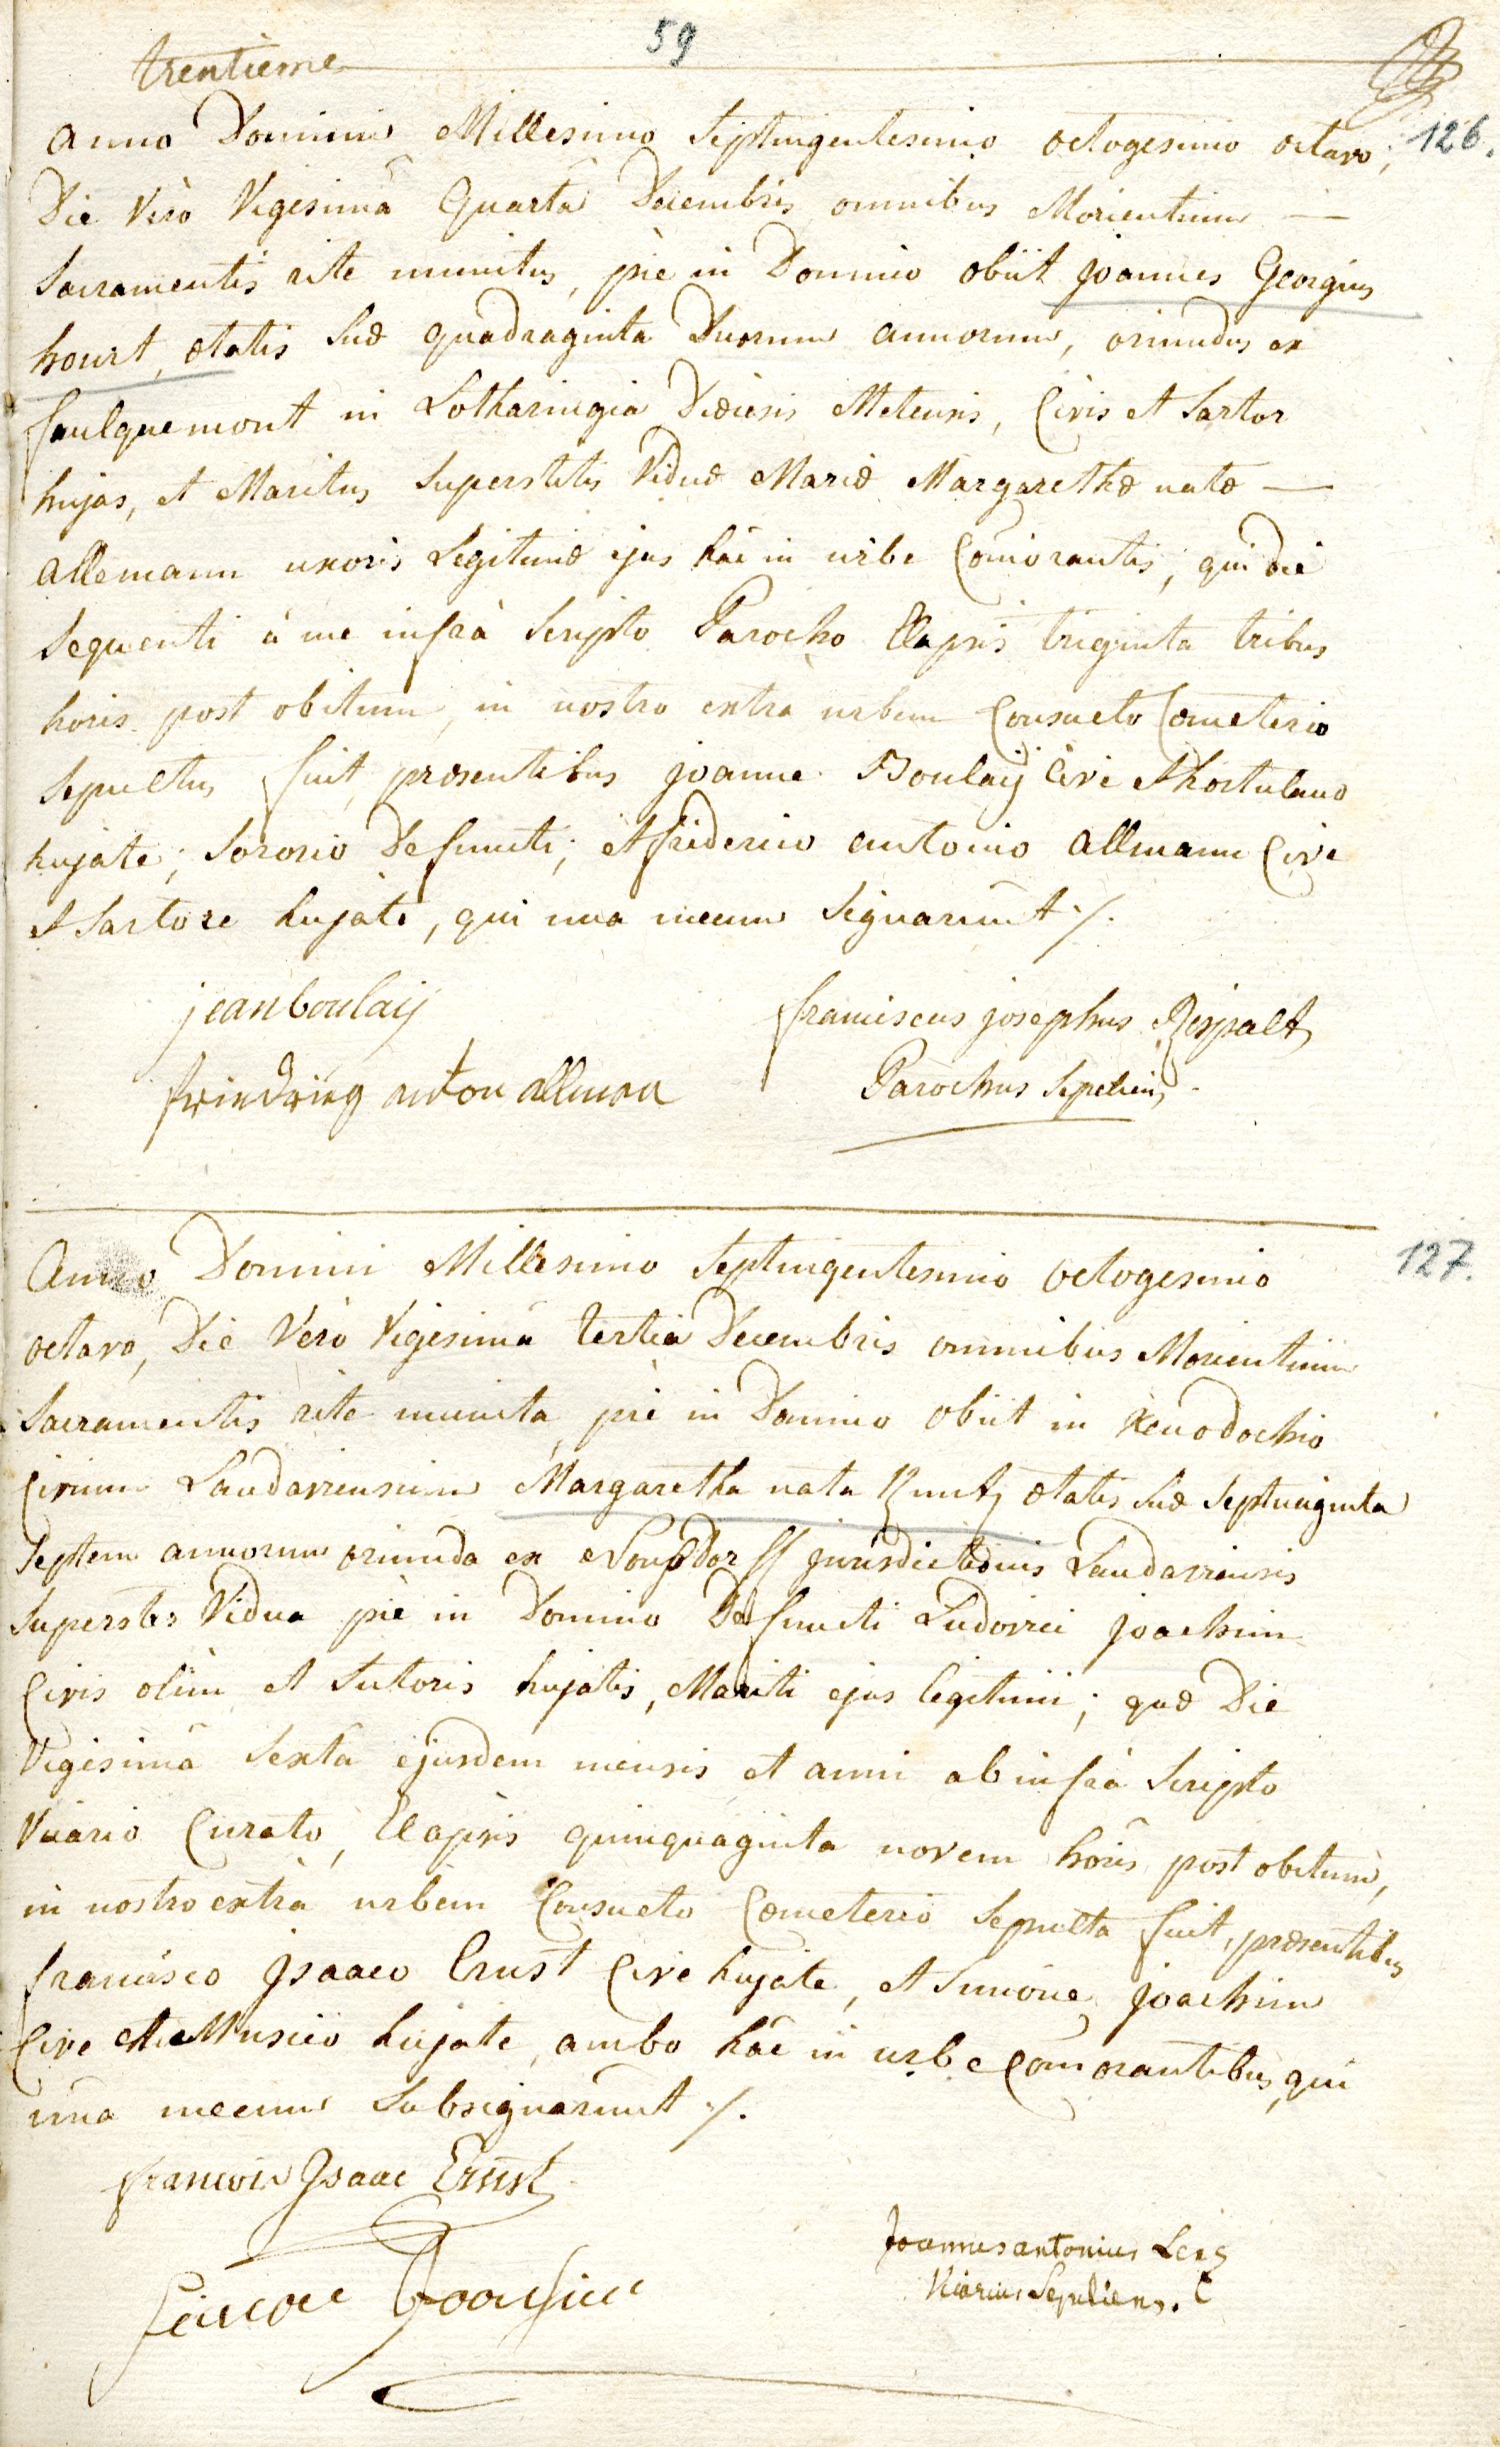 59
trentieme
anno Domini Millesimo Septingentesimo octogesimo octavo; 126.
Die Vero Vigesimâ Quartâ Decembris omnibus Morientium —
Sacramentis rite munitus, piè in Domino obiit joannes Georgius
hourt, ætatis suæ quadraginta Duorum annorum, oriundus ex
faulquemont in Lotharingia Diœcesis Metensis, Civis et Sartor
hujas, et Maritus superstitis Viduæ Mariæ Margarethæ natæ —
allemann uxoris Legitimæ ejus hâc in urbe Comorantis, qui die
sequenti à me infrà scripto Parocho Elapsis triginta tribus
horis post obitum, in nostro extra urbem Consueto Cœmeterio
sepultus fuit, præsentibus joanne Boulaÿ Cive et hortulano
hujate; sororio Defuncti; et friderico antonio allmann Cive
et Sartore hujate, qui una mecum signarunt ·/.
jean boulaÿ
franciscus josephus Rispalt
friedrieg anton allman
Parochus sepeliens
Anno Domini Millesimo Septingentesimo octogesimo 127.
octavo, Die Verò Vigesimâ tertiâ Decembris omnibus Morientium
Sacramentis rite munita piè in Domino obiit in Xenodochio
Civium Landaviensium Margaretha nata Kuntz ætatis suæ septuaginta
septem annorum oriunda ex jurisdictionis Landaviensis
superstes Vidua piè in Domino Defuncti Ludovici joachim
Civis olim et Sutoris hujatis, Mariti ejus legitimi; quæ Die
Vigesimâ Sextâ ejusdem mensis et anni ab infrà scripto
Vicario Curato, Elapsis quinquaginta novem horis post obitum,
in nostro extrà urbem Consueto Cœmeterio sepulta fuit, præsentibus
francisco Isaaco Ernst Cive hujate, et Simone joachim
Cive et Musico hujate, ambo hâc in urbe Comorantibus, qui
unâ mecum subsignarunt ·/.
francois Isaac Ernst
Joannes antonius
Vicarius Sepeliens.
Joachim